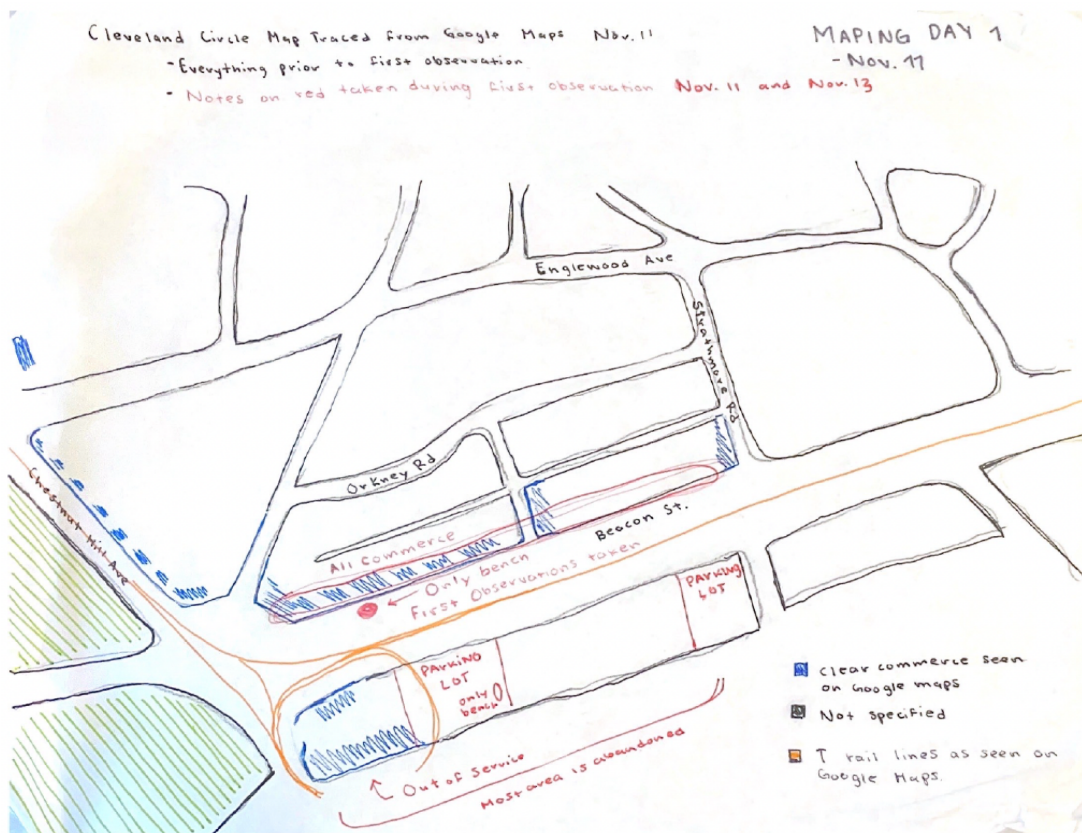 Cleveland Circle Map Traced from Google Maps Nov. 11
- Everything prior to first observation
- Notes on red taken during first observation Nov. 11 and Nov. 13
MAPING DAY 1
- Nov. 11
Englewood Ave
Strathmore Rd
Orkney Rd
Chestnut Hill Ave
All commerce
Beacon St.
← Only bench
First Observations taken
PARKING
LOT
PARKING
LOT
only
bench
Out of Service
Most area is abandoned
Clear commerce seen
on Google maps
Not specified
T rail lines as seen on
Google Maps.